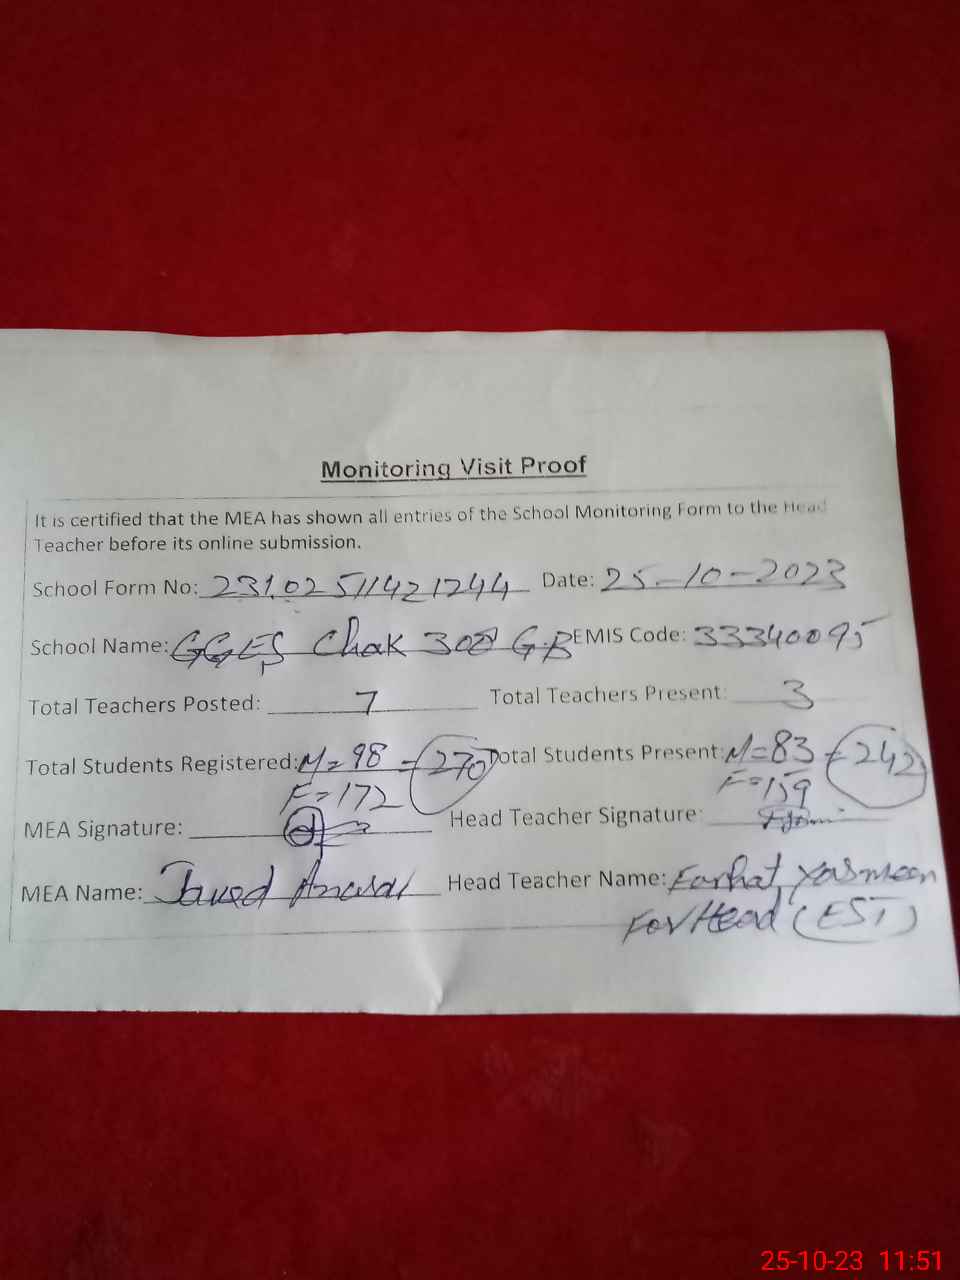 Monitoring Visit Proof
It is certified that the MEA has shown all entries of the School Monitoring Form to the Head
Teacher before its online submission.
School Form No: 23102511421244 Date: 25-10-2023
School Name: GGES Chak 308 G.B EMIS Code: 33340095
Total Teachers Posted: 7 Total Teachers Present: 3
Total Students Registered: M=98 - 270 Total Students Present: M=83 - 242
F=172 F=159
MEA Signature: Head Teacher Signature:
MEA Name: Javed Head Teacher Name: Farhat Yasmeen
For Head (EST)
25-10-23 11:51